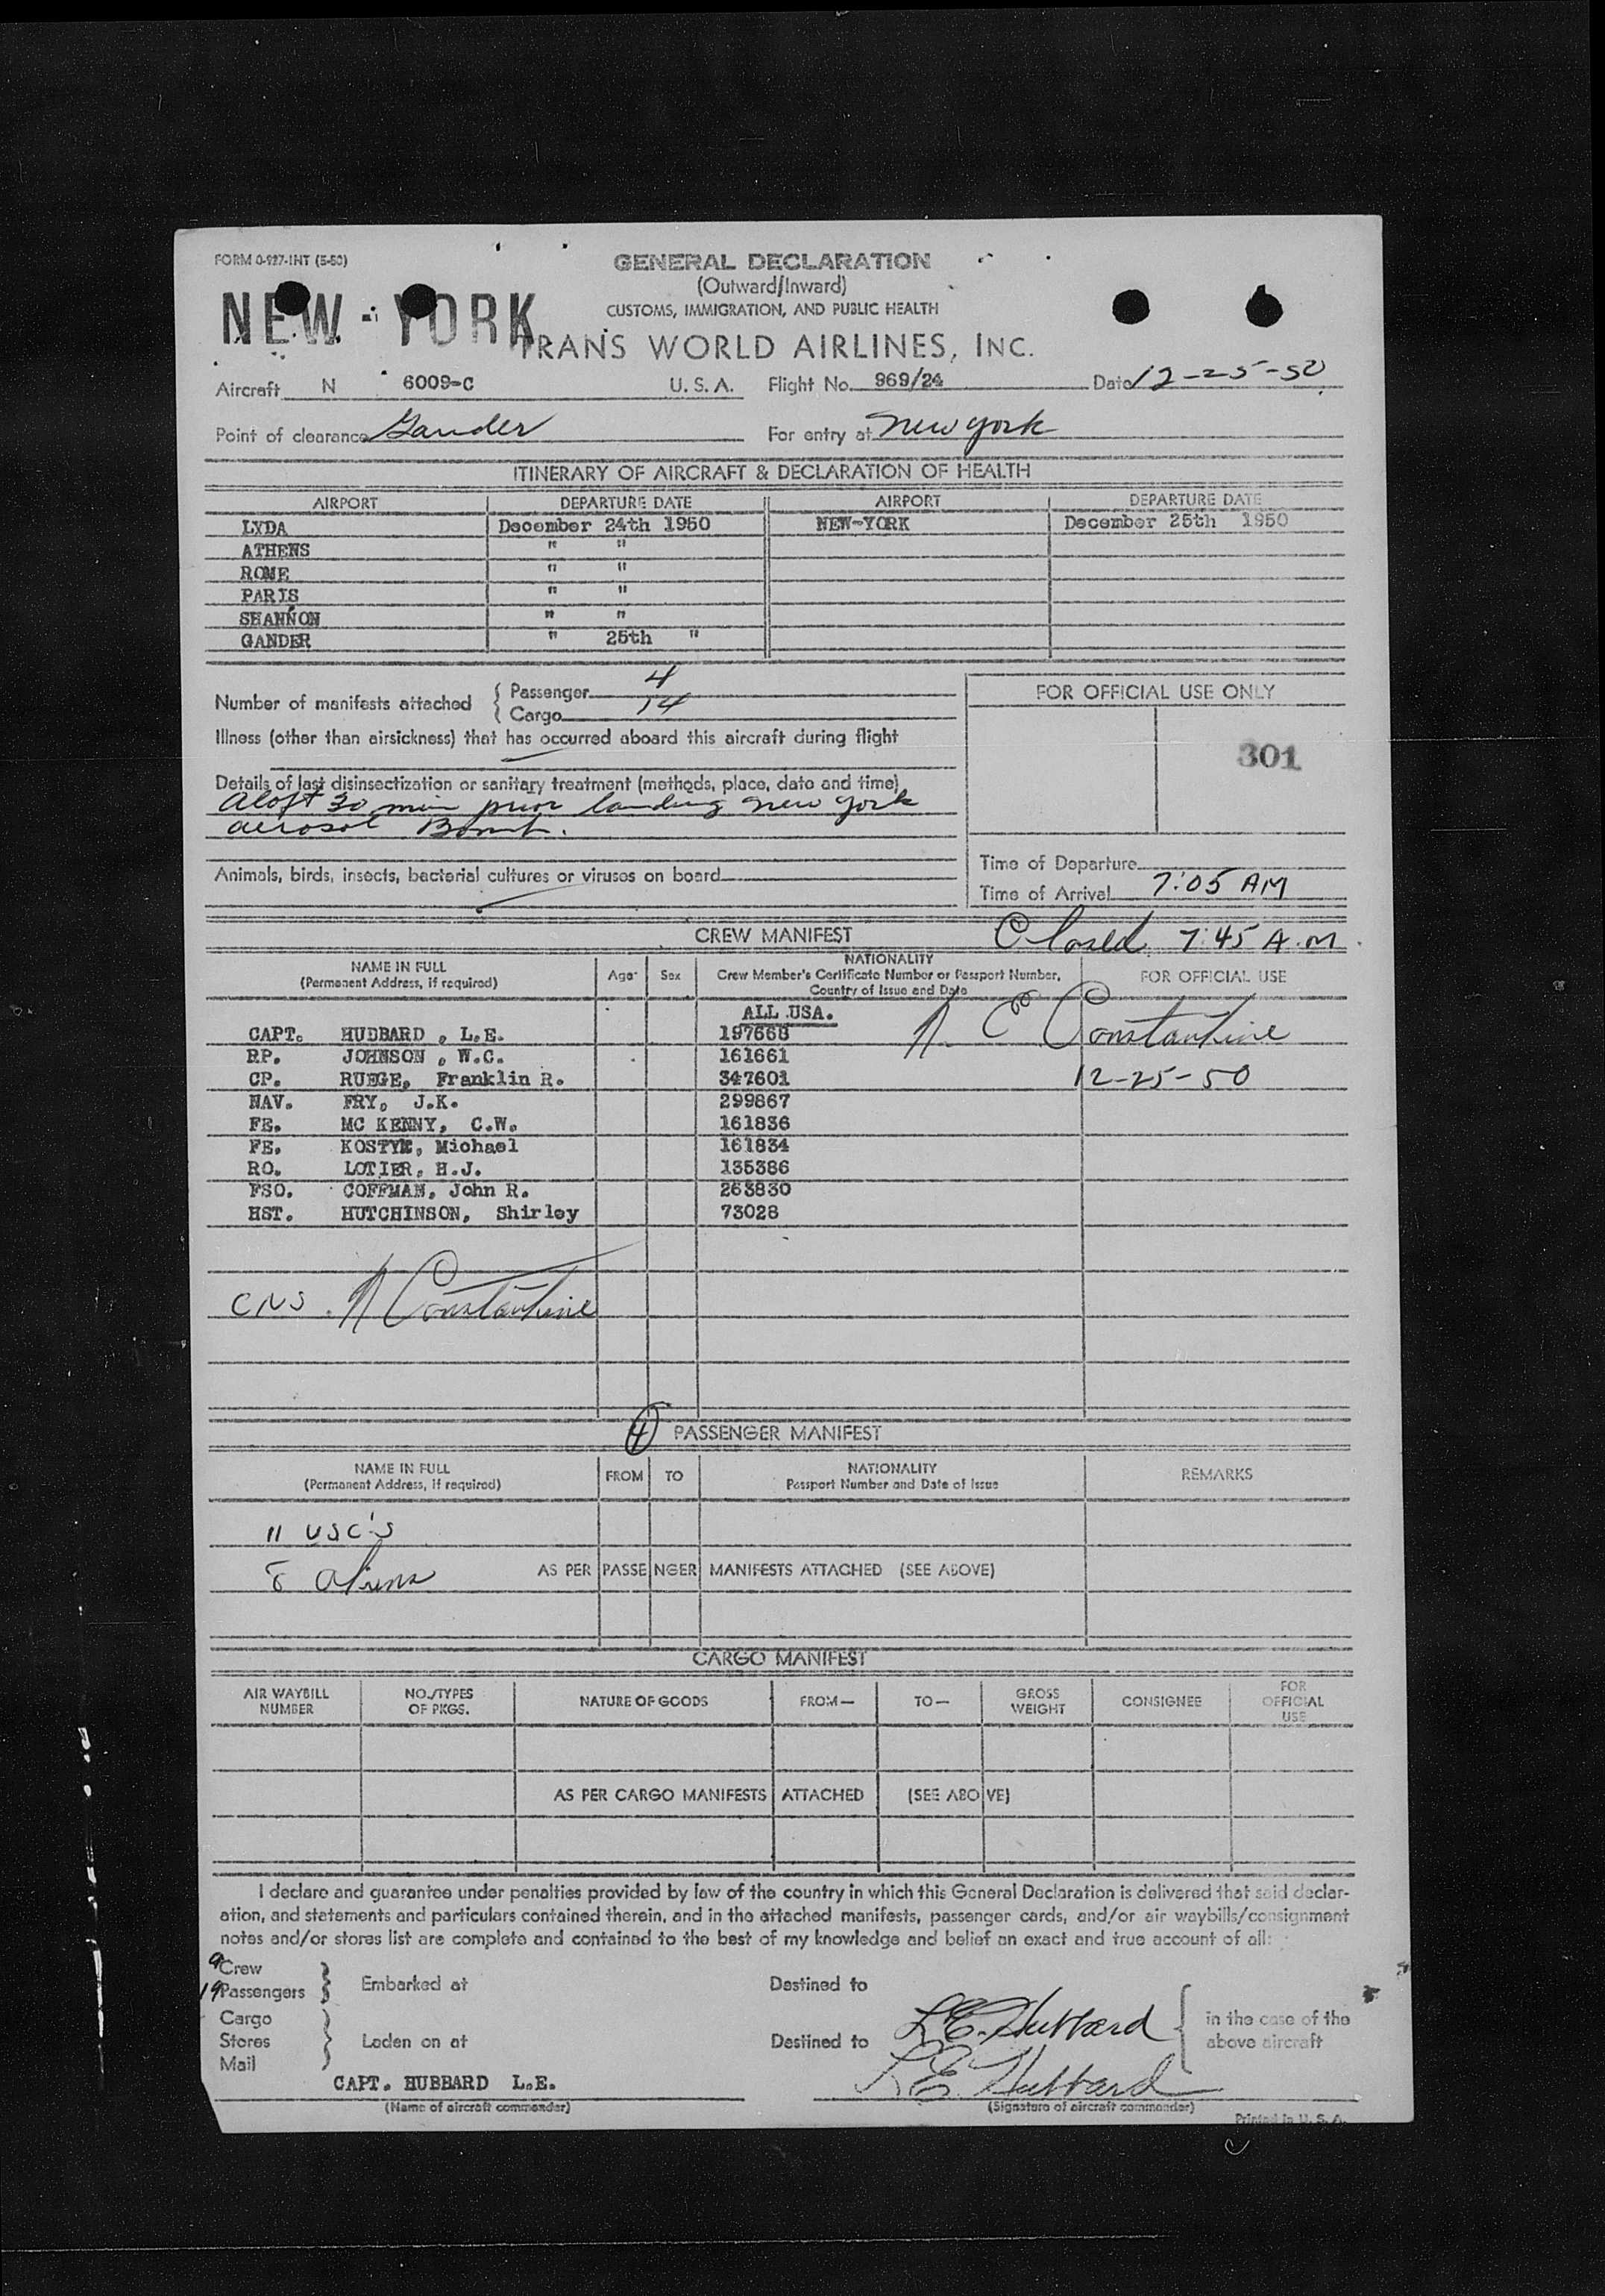 FORM 0-927-INT (5-50)
GENERAL DECLARATION
(Outward/Inward)
CUSTOMS, IMMIGRATION, AND PUBLIC HEALTH
NEW-YORK
TRANS WORLD AIRLINES, INC.
Aircraft N 6009-C U. S. A. Flight No. 969/24 Date 12-25-50
Point of clearance Gander For entry at New York
ITINERARY OF AIRCRAFT & DECLARATION OF HEALTH
AIRPORT DEPARTURE DATE AIRPORT DEPARTURE DATE
LYDA December 24th 1950 NEW-YORK December 25th 1950
ATHENS " "
ROME " "
PARIS " "
SHANNON " "
GANDER " 25th "
Number of manifests attached { Passenger 4
{ Cargo 14
FOR OFFICIAL USE ONLY
301
Illness (other than airsickness) that has occurred aboard this aircraft during flight
Details of last disinsectization or sanitary treatment (methods, place, date and time)
Aloft 30 min prior landing New York
aerosol Bomb.
Animals, birds, insects, bacterial cultures or viruses on board
Time of Departure
Time of Arrival 7:05 AM
CREW MANIFEST Closed 7:45 A.M.
NAME IN FULL (Permanent Address, if required) Age Sex NATIONALITY Crew Member's Certificate Number or Passport Number, Country of Issue and Date FOR OFFICIAL USE
ALL USA.
CAPT. HUDBARD , L.E. 197668 N E Constantine
RP. JOHNSON , W.C. 161661
CP. RUEGE, Franklin R. 347601 12-25-50
NAV. FRY, J.K. 299867
FE. MC KENNY, C.W. 161836
FE. KOSTYK, Michael 161834
RO. LOTIER, H.J. 135386
FSO. COFFMAN, John R. 263830
HST. HUTCHINSON, Shirley 73028
CNS. N Constantine
4 PASSENGER MANIFEST
NAME IN FULL (Permanent Address, if required) FROM TO NATIONALITY Passport Number and Date of Issue REMARKS
11 USC'S
8 aliens AS PER PASSENGER MANIFESTS ATTACHED (SEE ABOVE)
CARGO MANIFEST
AIR WAYBILL NUMBER NO./TYPES OF PKGS. NATURE OF GOODS FROM— TO— GROSS WEIGHT CONSIGNEE FOR OFFICIAL USE
AS PER CARGO MANIFESTS ATTACHED (SEE ABOVE)
I declare and guarantee under penalties provided by law of the country in which this General Declaration is delivered that said declar-
ation, and statements and particulars contained therein, and in the attached manifests, passenger cards, and/or air waybills/consignment
notes and/or stores list are complete and contained to the best of my knowledge and belief an exact and true account of all:
9 Crew
19 Passengers } Embarked at Destined to
Cargo
Stores } Laden on at Destined to L.E. Hubbard { in the case of the above aircraft
Mail
CAPT. HUBBARD L.E. L.E. Hubbard
(Name of aircraft commander) (Signature of aircraft commander)
Printed in U. S. A.